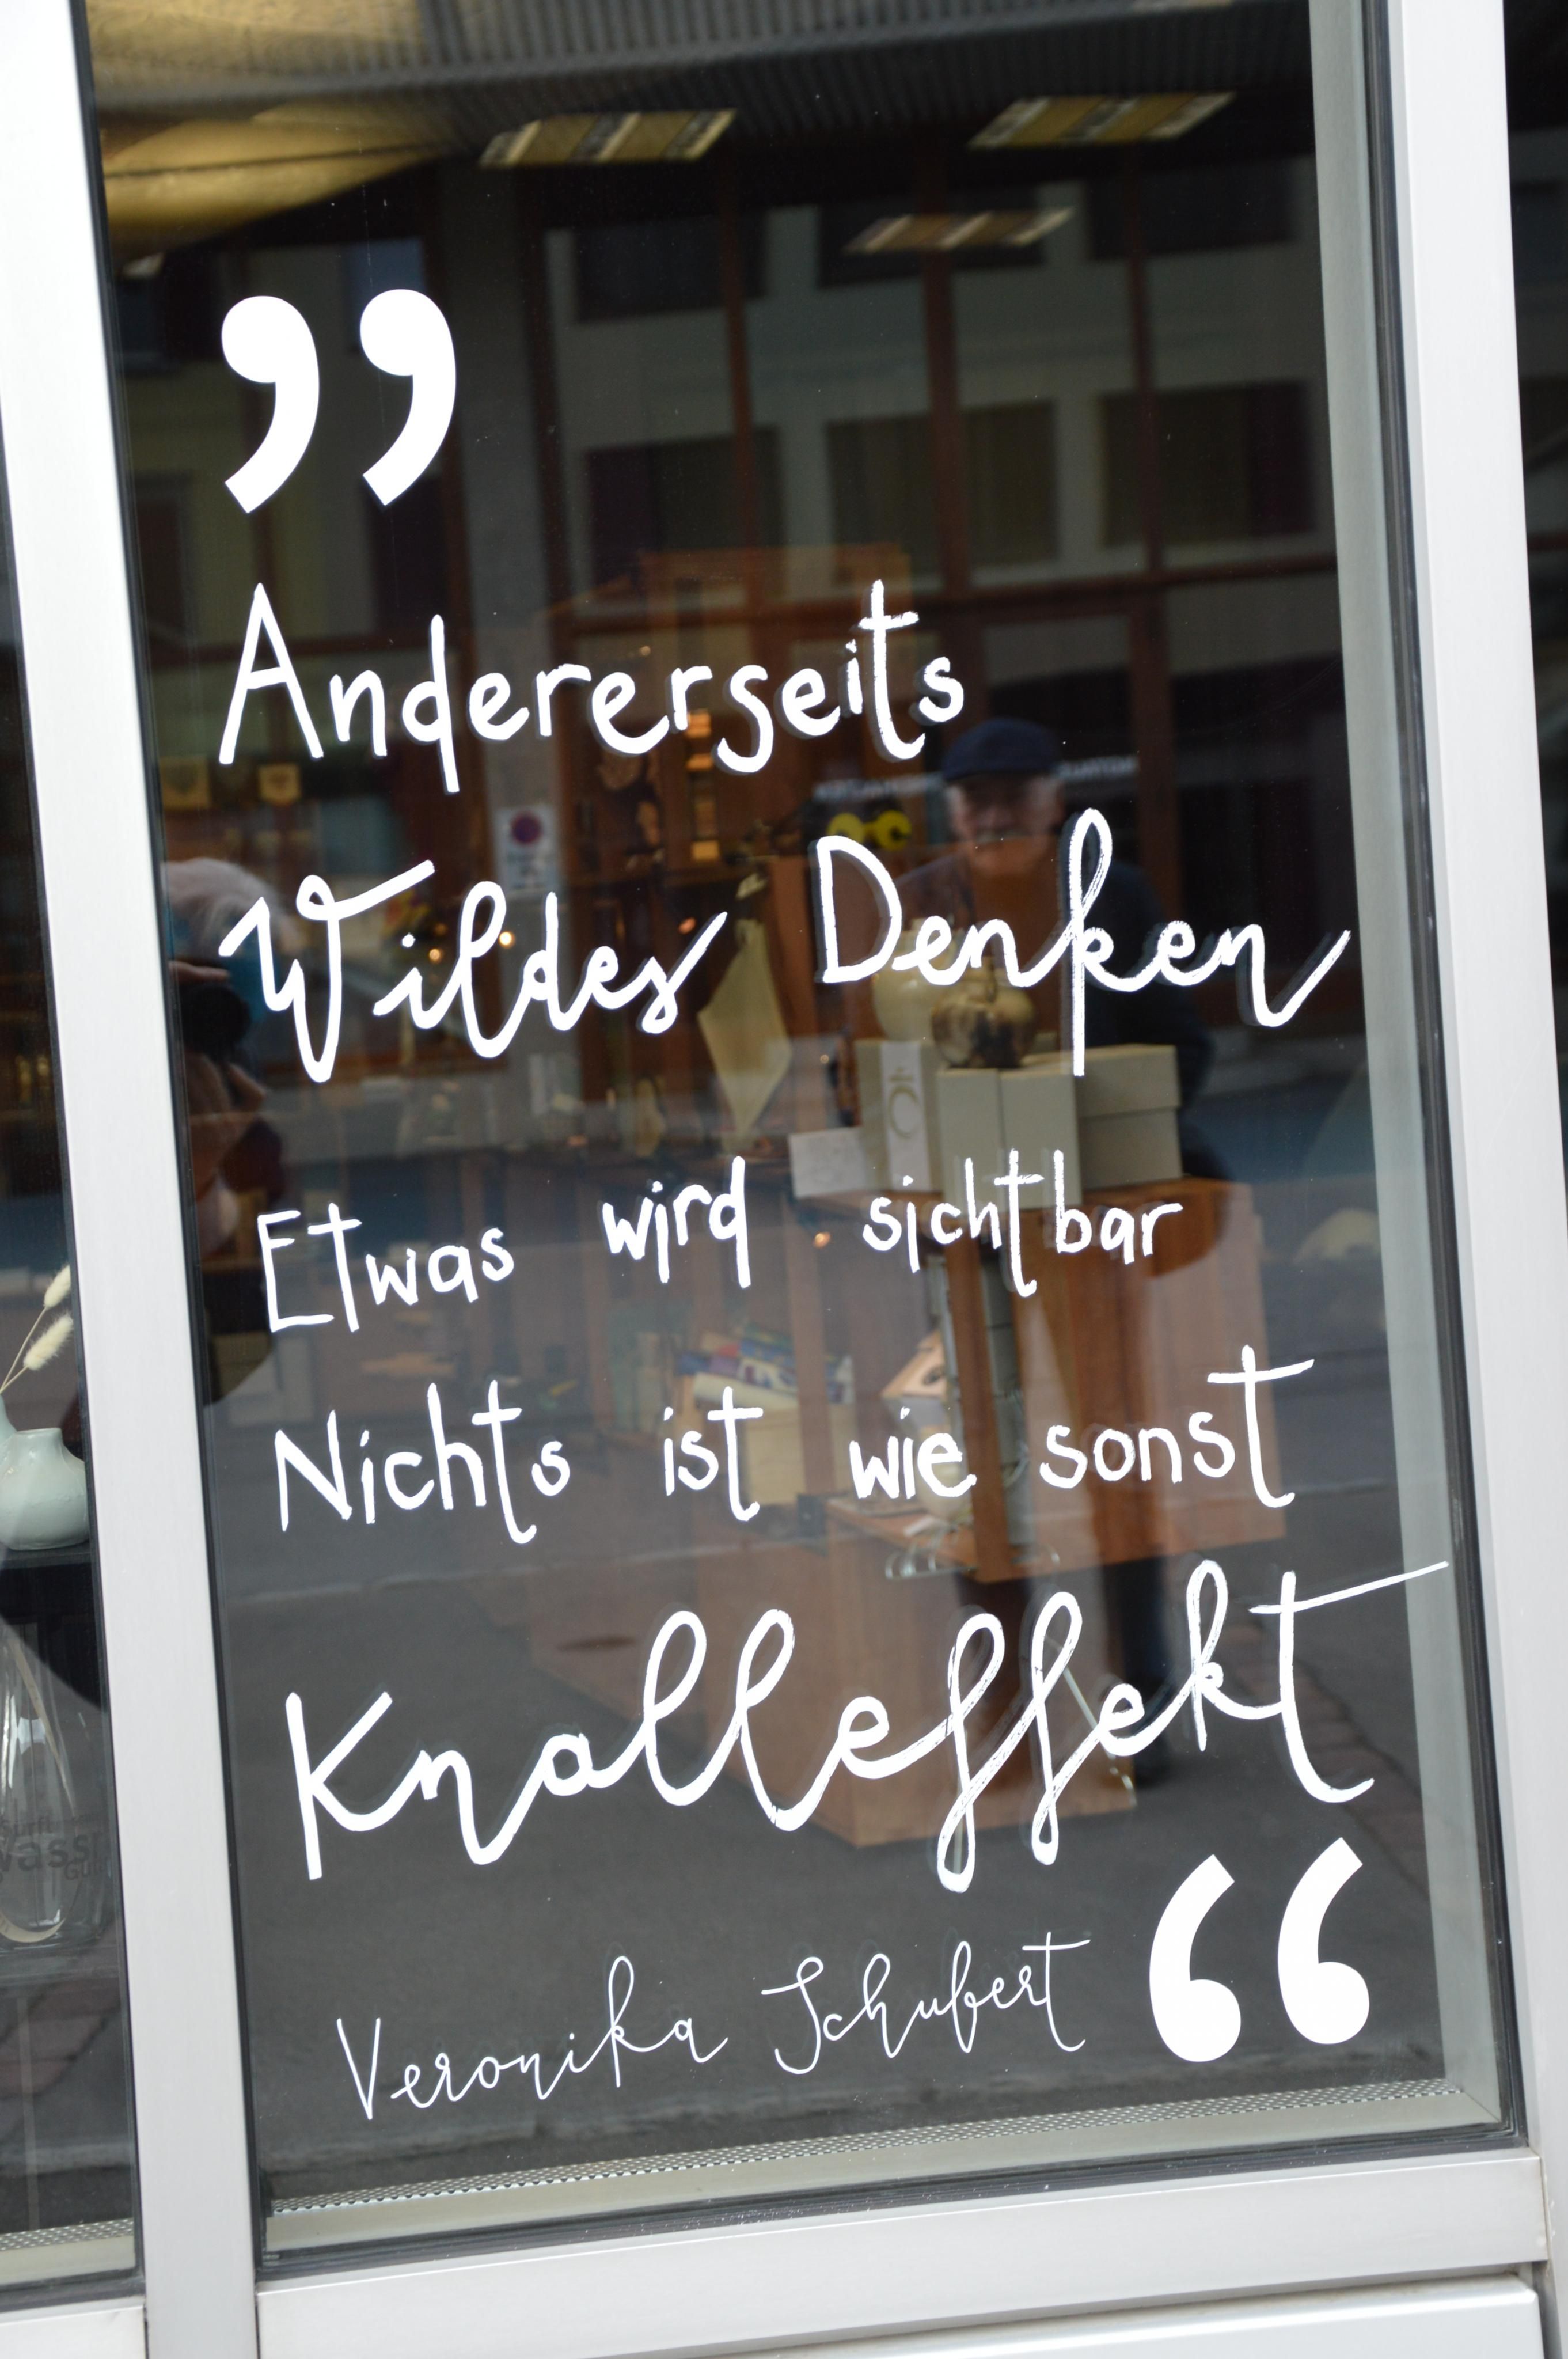 ”
Andererseits
Wildes Denken
Etwas wird sichtbar
Nichts ist wie sonst
Knalleffekt
Veronika Schubert “